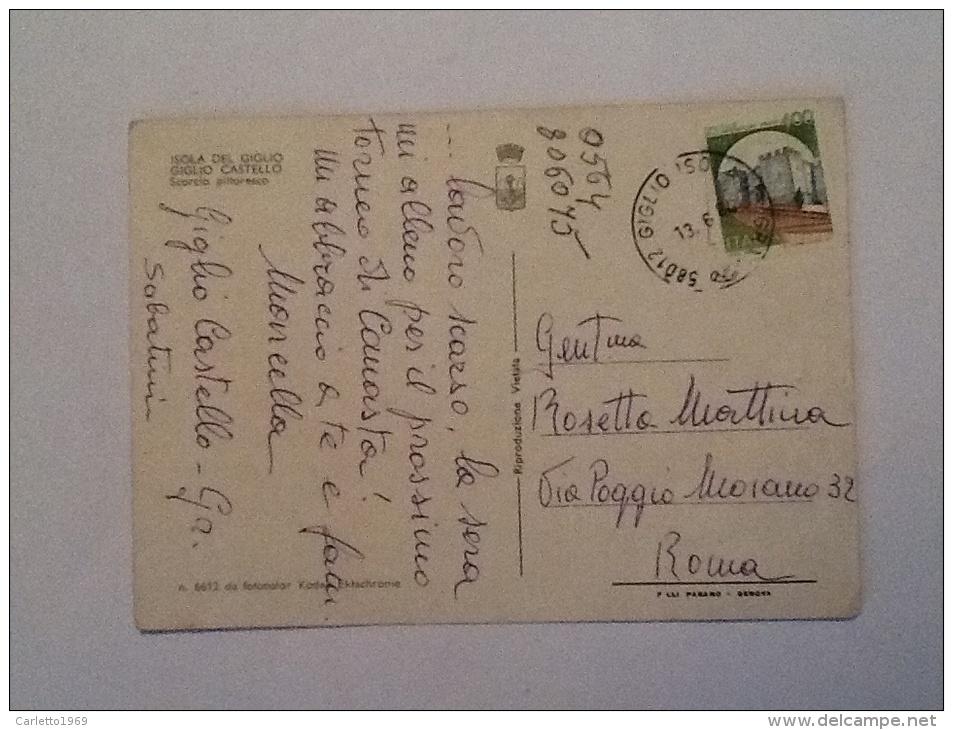 ISOLA DEL GIGLIO
GIGLIO CASTELLO
Scorcio pittoresco
... lavoro scarso, la sera
mi alleno per il prossimo
torneo di Canasta!
Mi abbraccio a te e fam.
Morella
Giglio Castello - Gr.
Sabatini
n. 6612 da fotocolor Kodak Ektachrome
Riproduzione Vietata
0564
806075
400
58012 GIGLIO ISO
13.6
Gent.ma
Rosetta Mattina
Via Poggio Moiano 32
Roma
F.LLI PAGANO - GENOVA
Carletto1969
www.delcampe.net